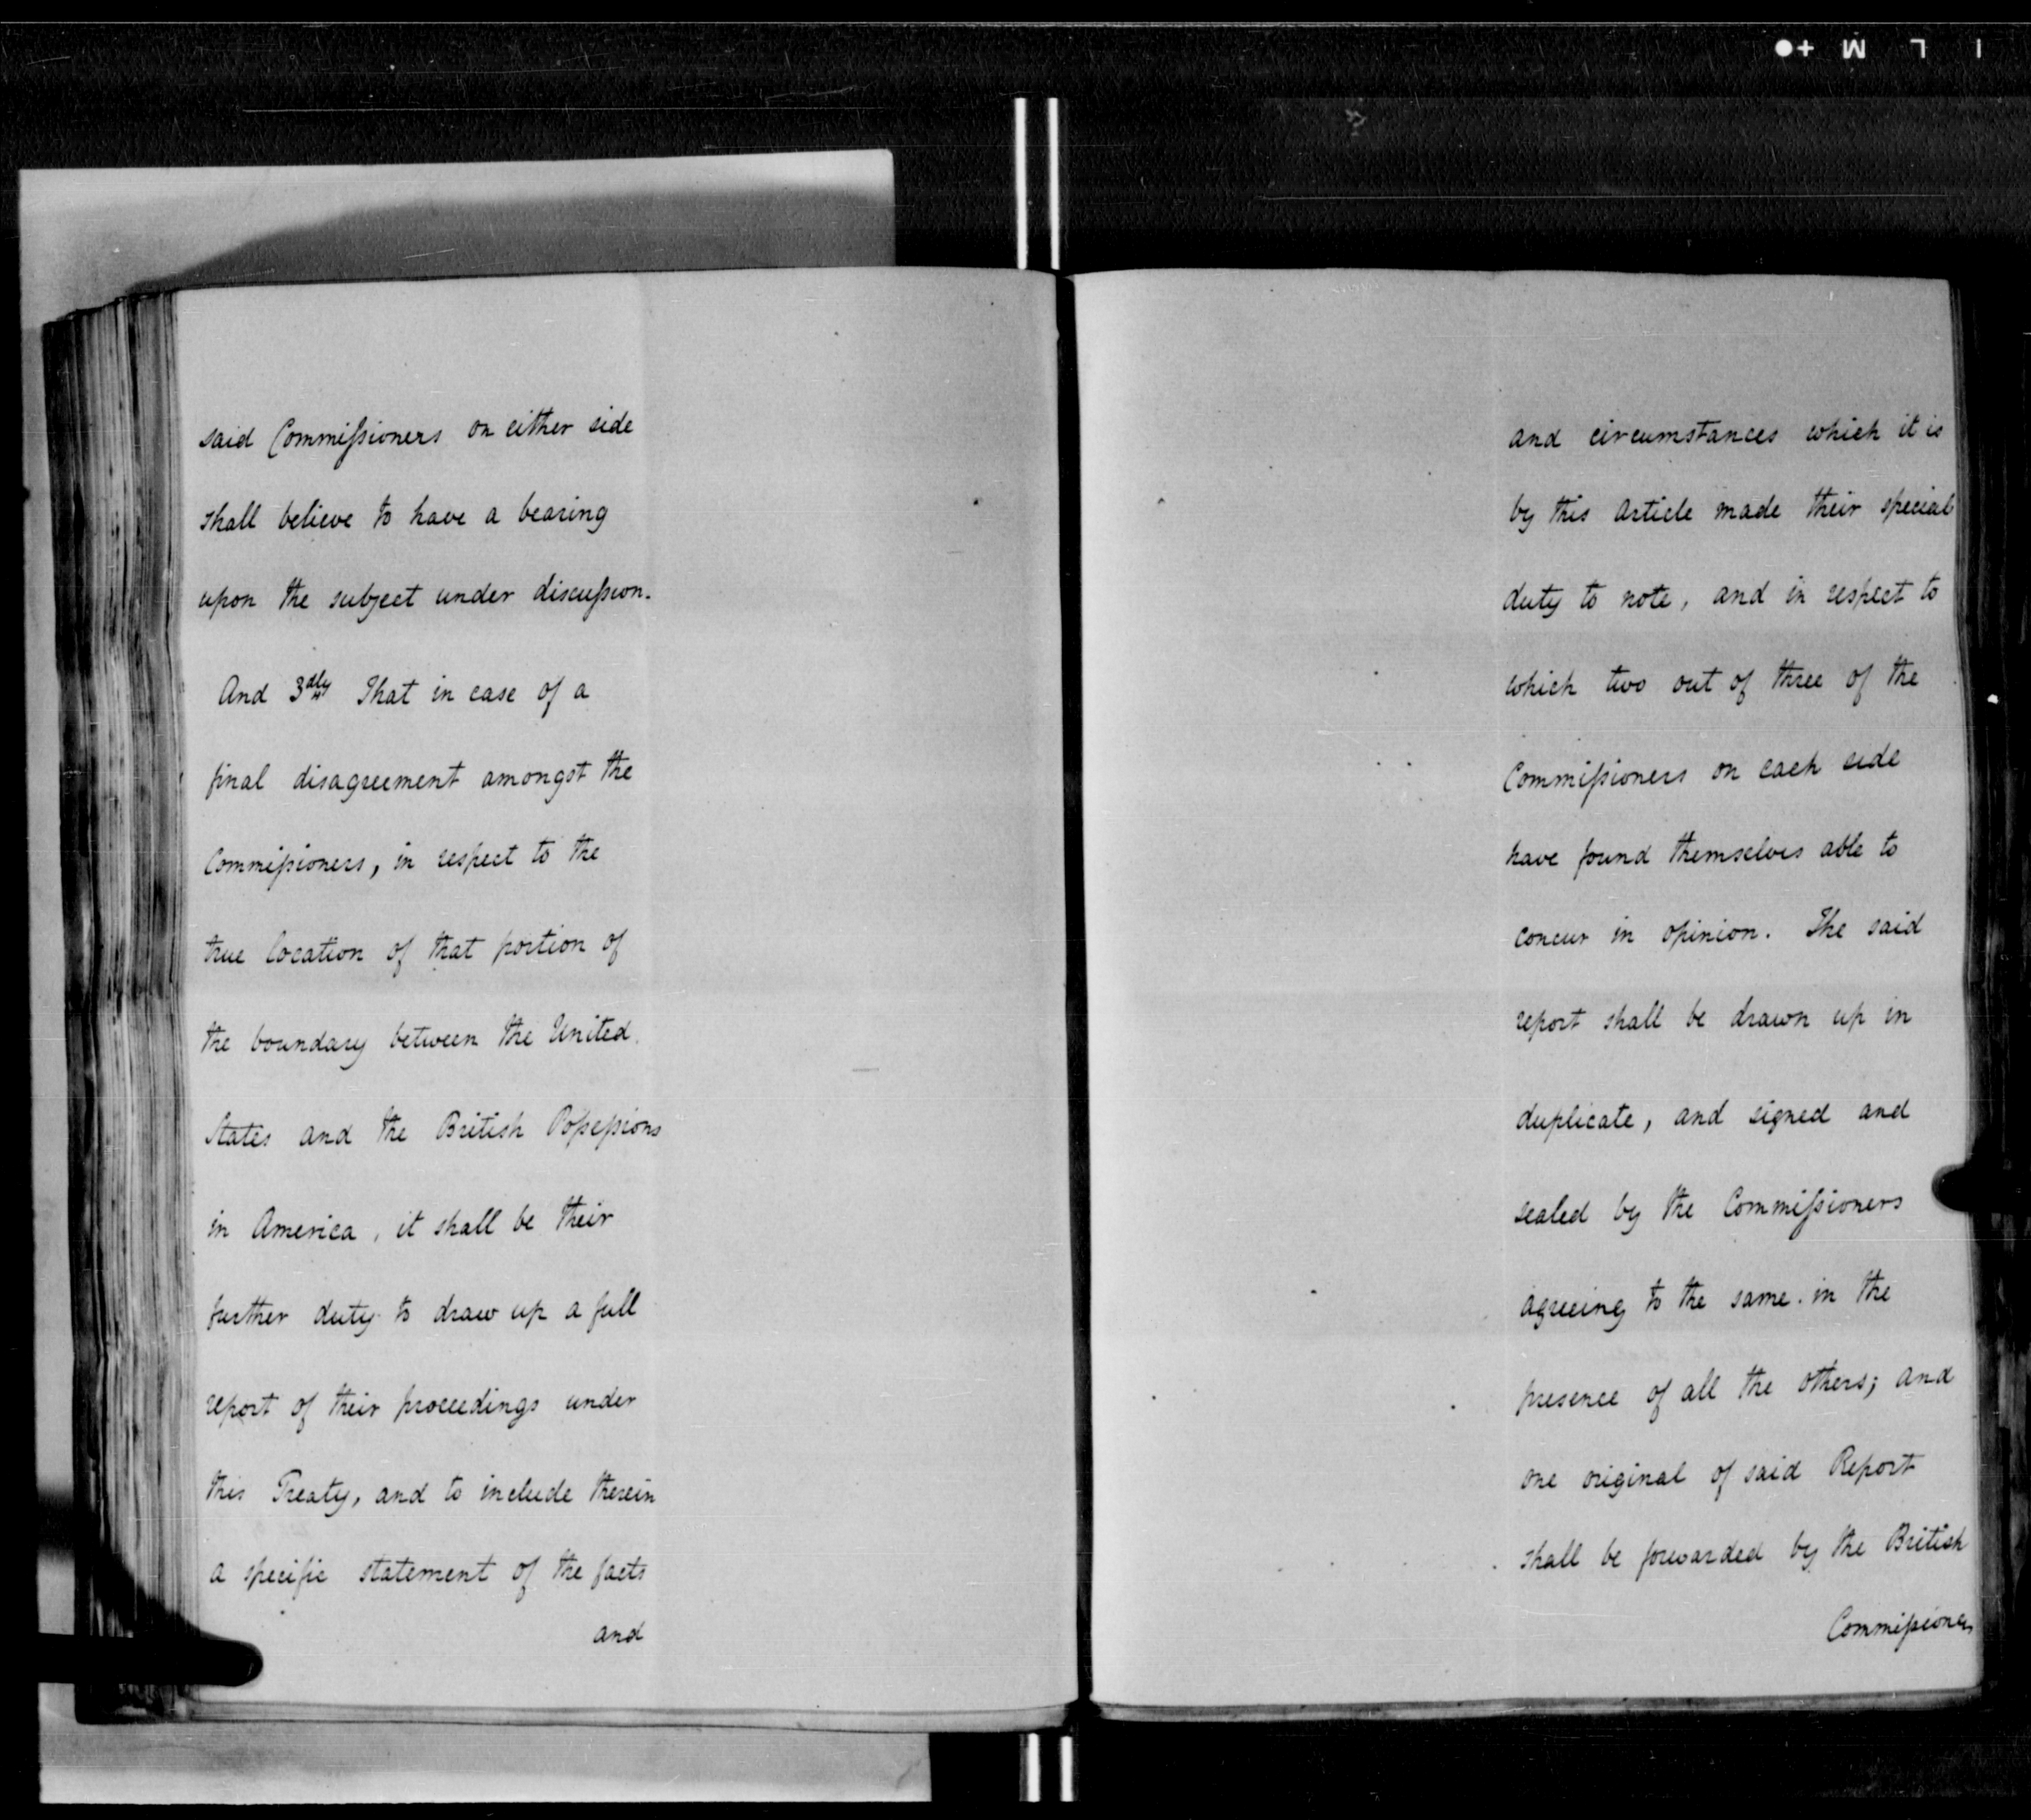 said Commissioners on either side
shall believe to have a bearing
upon the subject under discussion.
And 3dly That in case of a
final disagreement amongst the
Commissioners, in respect to the
true location of that portion of
the boundary between the United
States and the British Possessions
in America, it shall be their
further duty to draw up a full
report of their proceedings under
this Treaty, and to include therein
a specific statement of the facts
and
and circumstances which it is
by this Article made their special
duty to note, and in respect to
which two out of three of the
Commissioners on each side
have found themselves able to
concur in opinion. The said
report shall be drawn up in
duplicate, and signed and
sealed by the Commissioners
agreeing to the same in the
presence of all the others; and
one original of said Report
shall be forwarded by the British
Commissioners